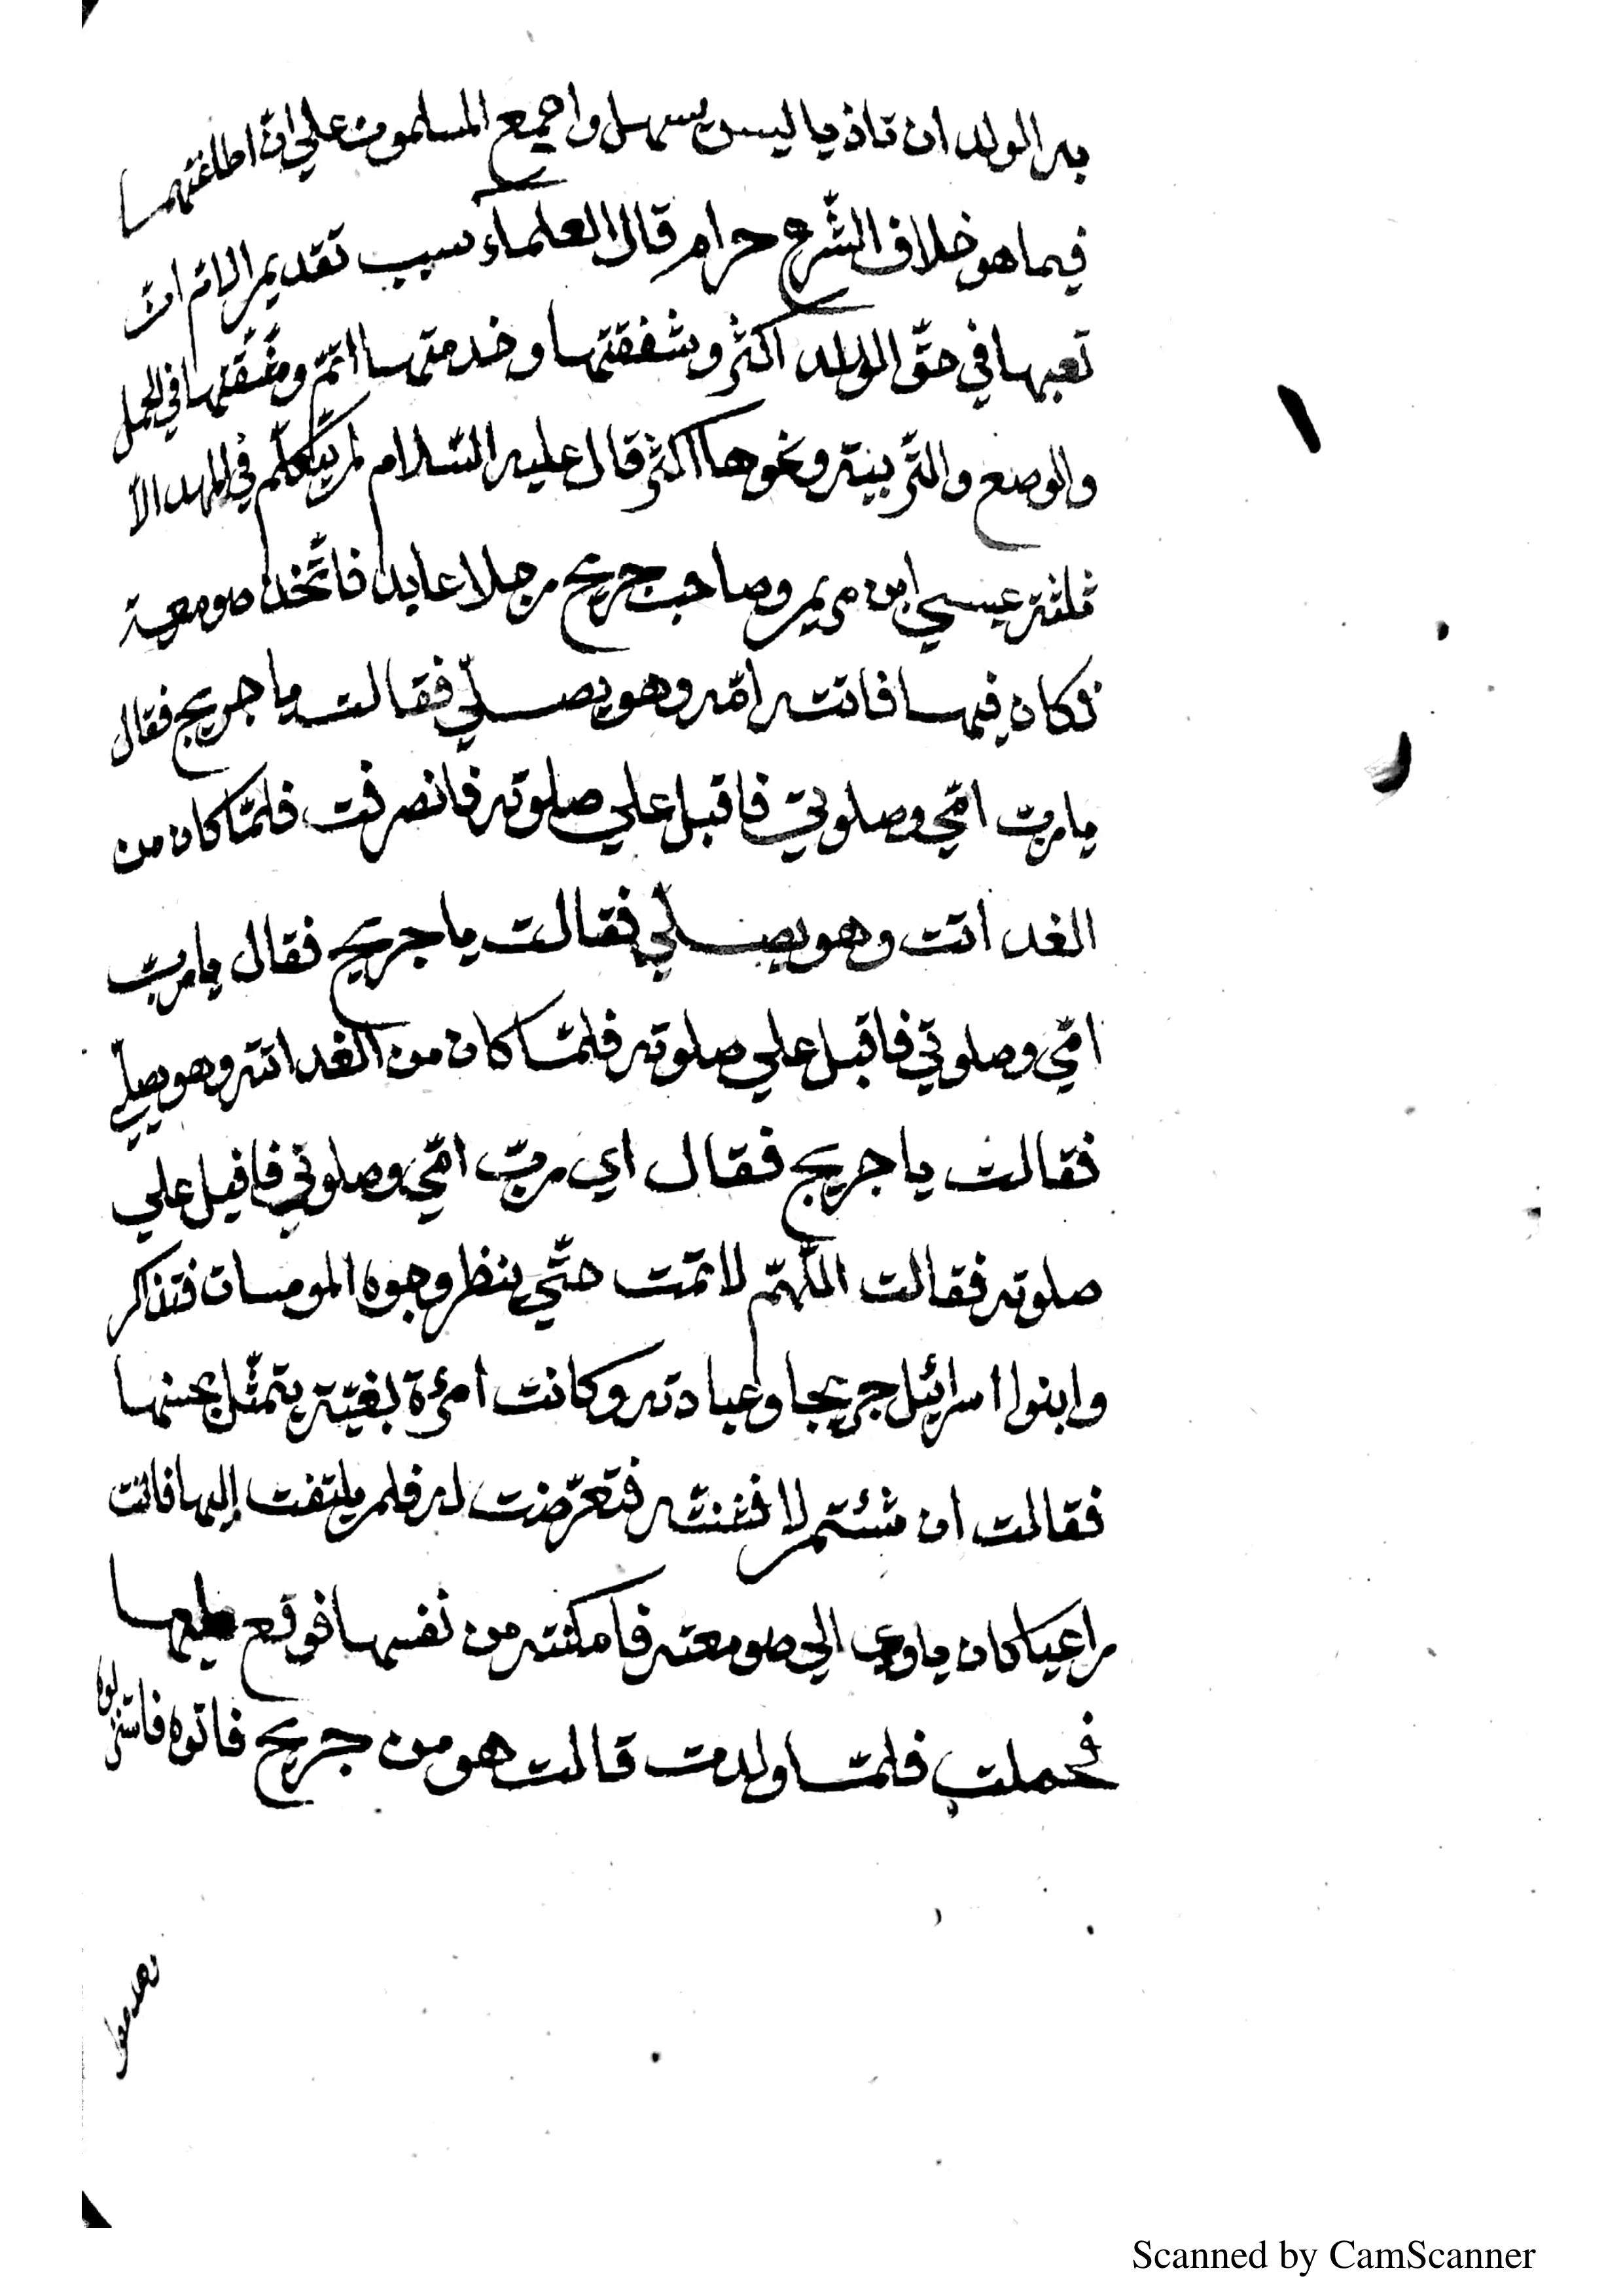 به الولد ان تاذيا ليس سهل واجمع المسلمون علي انّ اطاعتهما
فيما هو خلاف الشّرع حرام قال العلماء سبب تقديم الامّ انّ
تعبها في حقّ الولد اكثر وشفقتها وخدمتها اتمّ ومشقّتها في الحمل
والوضع والتّربية ونحوها اكثر قال عليه السّلام لم يتكلّم في المهد الا
ثلثة عيسي ابن مريم وصاحب جريج رجلا عابدا فاتّخذ صومعة
فكان فيها فاتته امّه وهو يصلّي فقالت يا جريج فقال
يا ربّ امّي وصلوتي فاقبل علي صلوته فانصرفت فلمّا كان من
الغد اتت وهو يصلّي فقالت يا جريج فقال يا ربّ
امّي وصلوتي فاقبل علي صلوته فلمّا كان من الغد اتته وهو يصلّي
فقالت يا جريج فقال اي ربّ امّي وصلوتي فاقبل علي
صلوته فقالت اللّهمّ لا تمّت حتّي ينظر وجوه المومسات فتذاكر
وابنوا اسرائيل جريجا وعبادته وكانت امرءة بغيّة يتمثّل بحسنها
فقالت ان شئتم لافتننّه فتعرّضت له فلم يلتفت إليها فاتت
راعيا كان ياوي الي صومعته فامكنته من نفسها فوقع عليها
فحملت فلمّا ولدت قالت هو من جريج فاتوه فاستنزلوه
Scanned by CamScanner